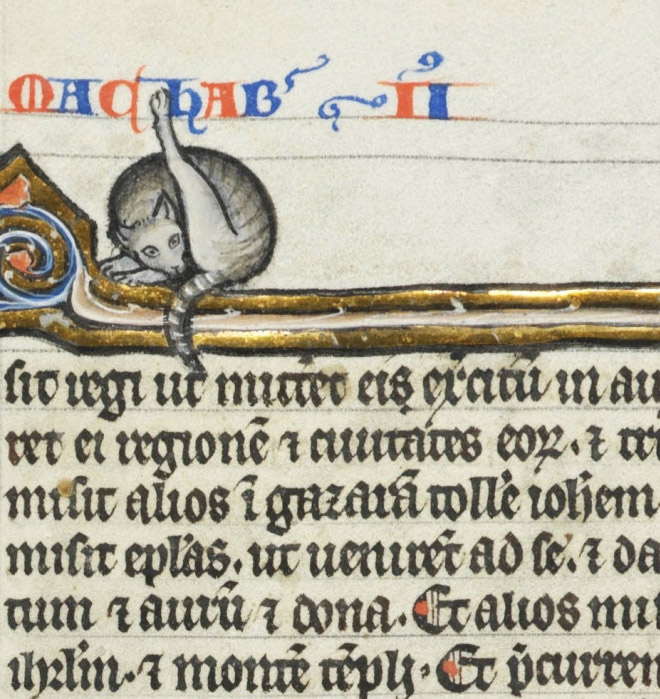 MACHAB' II
sit regi ut mitter̃t eis ex̃citũ in au
ret ei regionẽ ⁊ ciuitates eoꝝ. ⁊ tr
misit alios ĩ gazarã tolle᷑ ioh̃em
misit ep̃las. ut ueniret̃ ad se. ⁊ da
tum ⁊ aurũ ⁊ dona. Et alios mi
ihrl̃m. ⁊ montẽ tẽpli. Et p̃curren